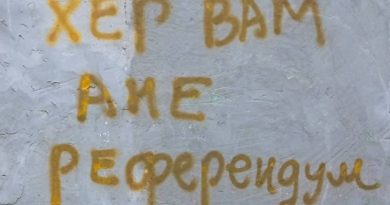 ХЕР ВАМ
АНЕ
РЕФЕРЕНДУМ